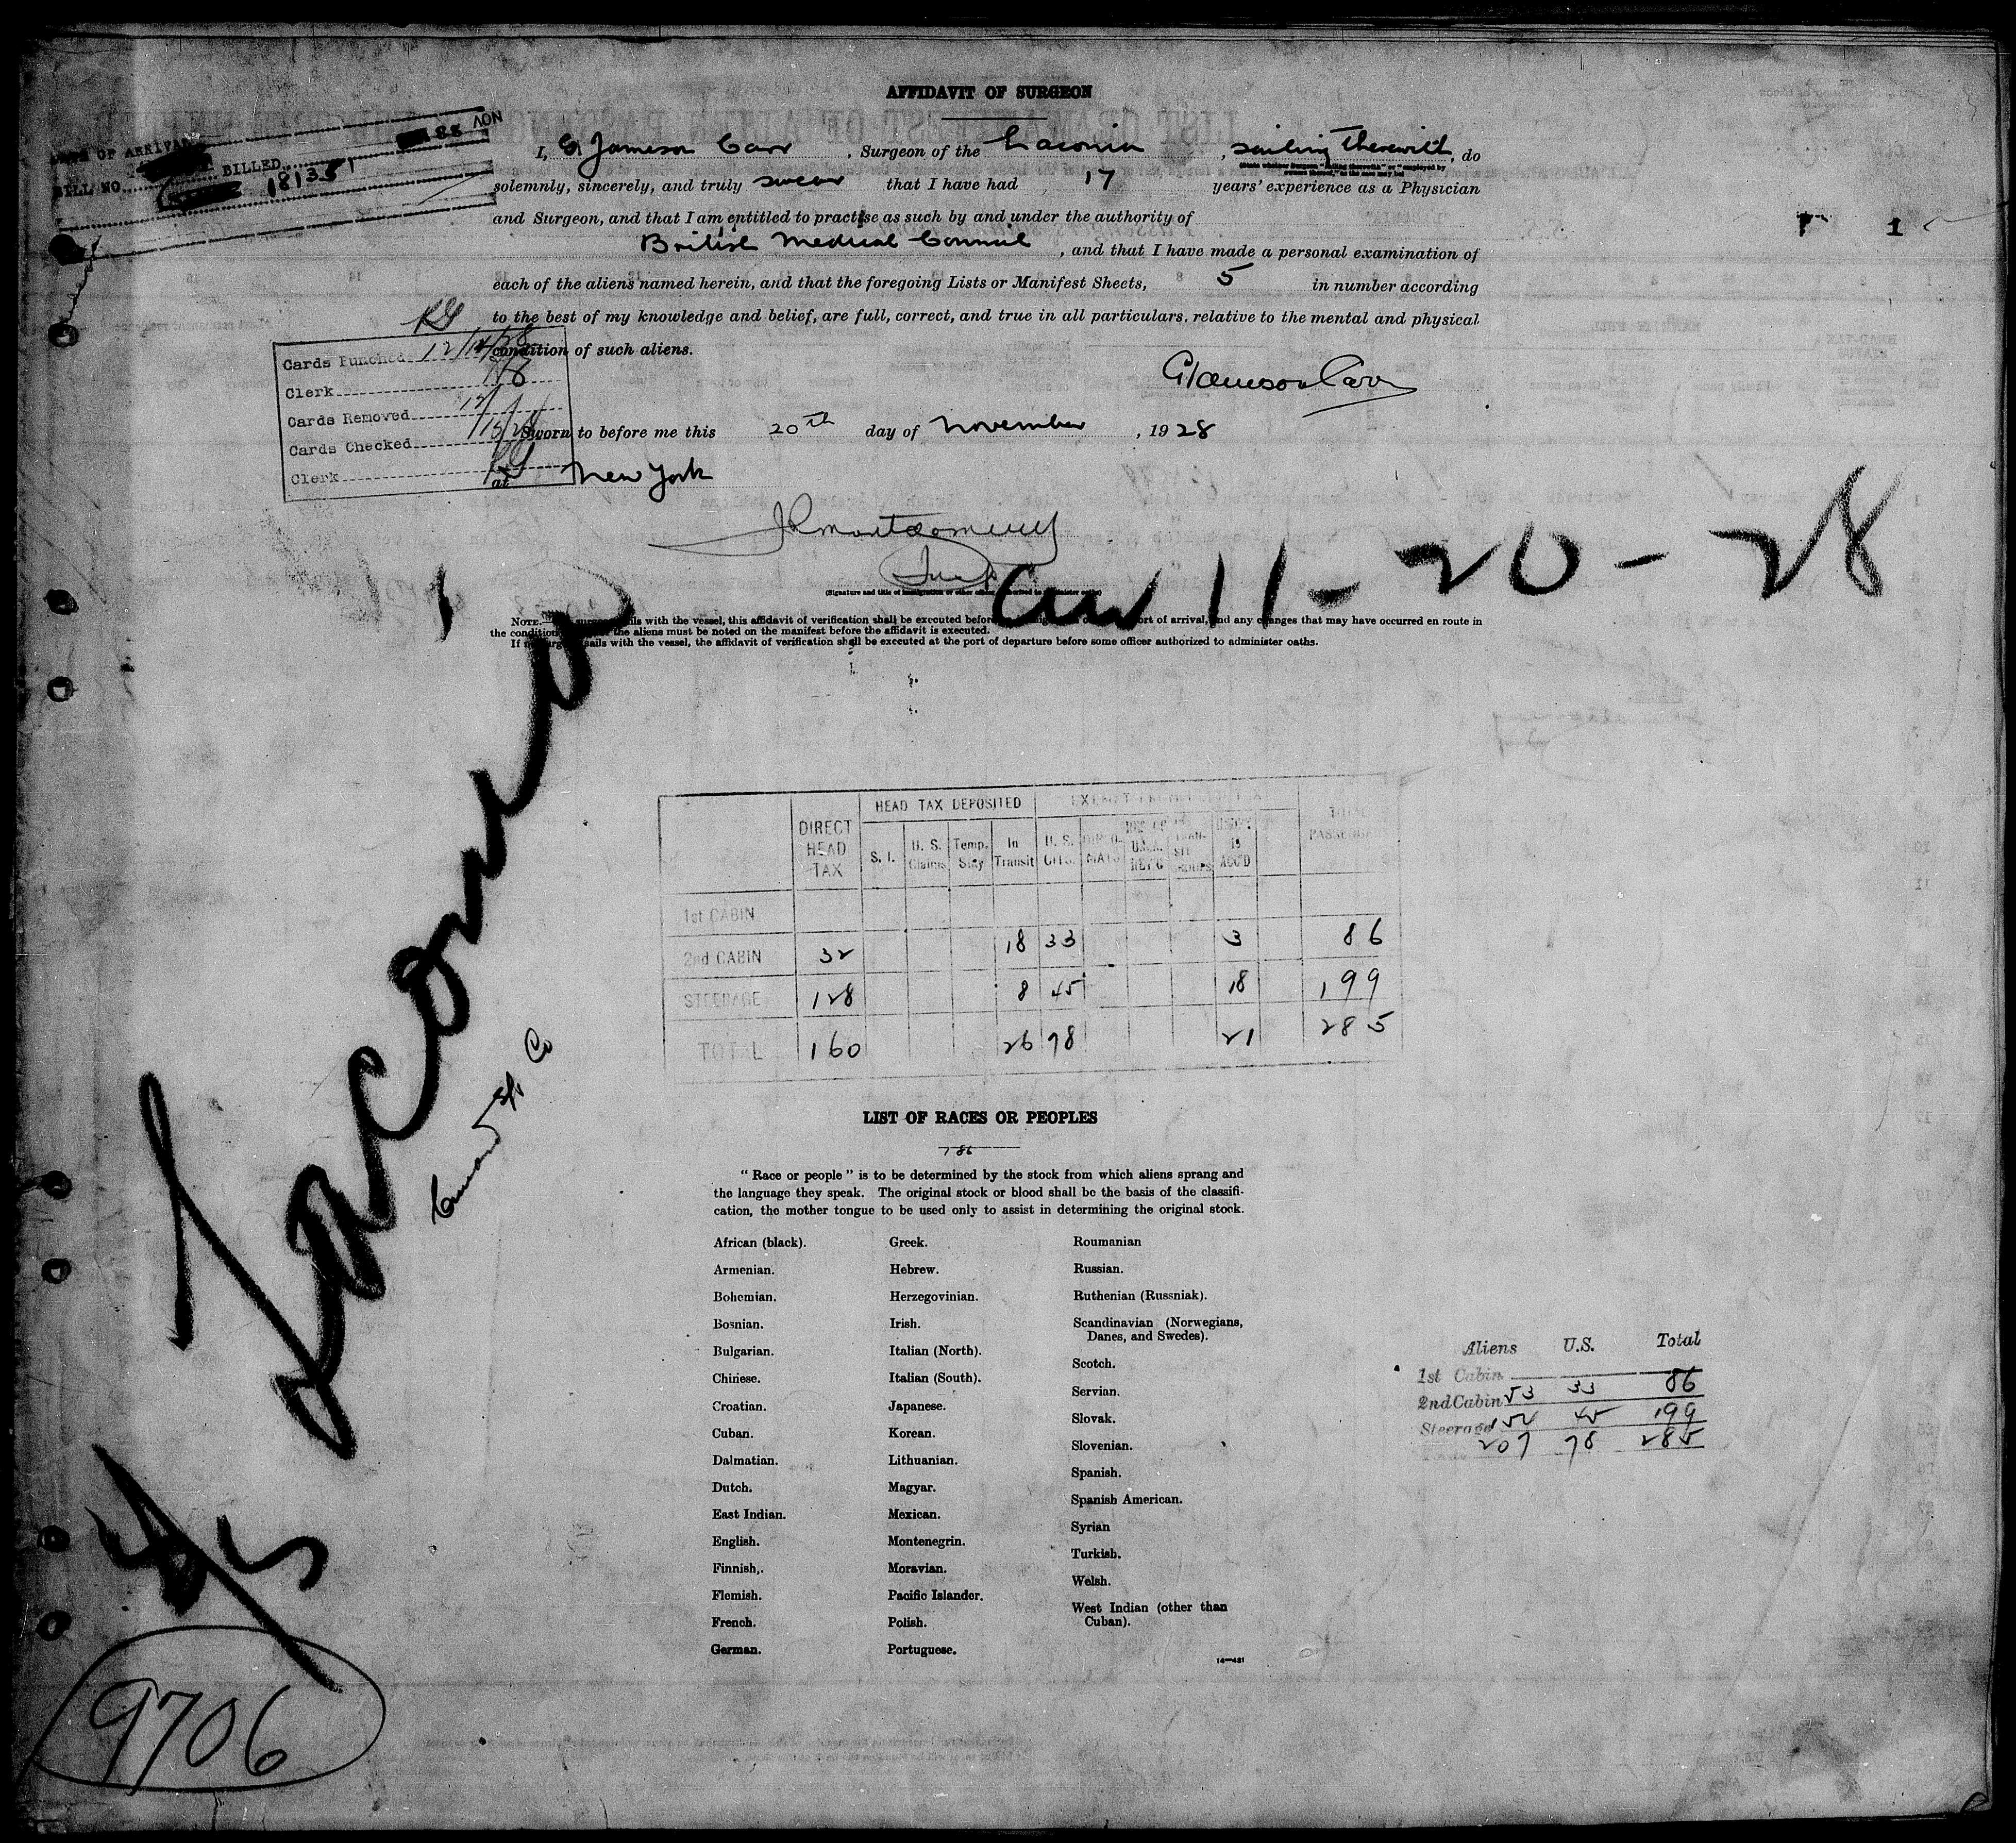 AFFIDAVIT OF SURGEON
I, G Jameson Carr, Surgeon of the Laconia, sailing therewith, do
solemnly, sincerely, and truly swear that I have had 17 years' experience as a Physician
and Surgeon, and that I am entitled to practise as such by and under the authority of
British Medical Council, and that I have made a personal examination of
each of the aliens named herein, and that the foregoing Lists or Manifest Sheets, 5 in number according
to the best of my knowledge and belief, are full, correct, and true in all particulars, relative to the mental and physical
condition of such aliens.
G Jameson Carr
Sworn to before me this 20th day of November, 1928
at New York
J Montgomery
OF ARRIVAL
BILL NO. BILLED
NOV
1
Cards Punched 12/14/28
Clerk
Cards Removed
Cards Checked
Clerk
Arr 11-20-28
NOTE.— with the vessel, this affidavit of verification shall be executed before of arrival, and any changes that may have occurred en route in
the condition the aliens must be noted on the manifest before the affidavit is executed.
If no surgeon sails with the vessel, the affidavit of verification shall be executed at the port of departure before some officer authorized to administer oaths.
DIRECT HEAD TAX
HEAD TAX DEPOSITED
S. I. U. S. Claims Temp. Stay In Transit U. S. CITS.
1st CABIN
2nd CABIN 32 18 33 3 86
STEERAGE 128 8 45 18 199
TOTAL 160 26 78 21 285
Laconia
Cunard S/S Co
S/S
9706
LIST OF RACES OR PEOPLES
786
"Race or people" is to be determined by the stock from which aliens sprang and
the language they speak. The original stock or blood shall be the basis of the classifi-
cation, the mother tongue to be used only to assist in determining the original stock.
African (black).
Armenian.
Bohemian.
Bosnian.
Bulgarian.
Chinese.
Croatian.
Cuban.
Dalmatian.
Dutch.
East Indian.
English.
Finnish.
Flemish.
French.
German.
Greek.
Hebrew.
Herzegovinian.
Irish.
Italian (North).
Italian (South).
Japanese.
Korean.
Lithuanian.
Magyar.
Mexican.
Montenegrin.
Moravian.
Pacific Islander.
Polish.
Portuguese.
Roumanian
Russian.
Ruthenian (Russniak).
Scandinavian (Norwegians,
Danes, and Swedes).
Scotch.
Servian.
Slovak.
Slovenian.
Spanish.
Spanish American.
Syrian
Turkish.
Welsh.
West Indian (other than
Cuban).
14—481
Aliens U.S. Total
1st Cabin
2nd Cabin 53 33 86
Steerage 154 45 199
207 78 285